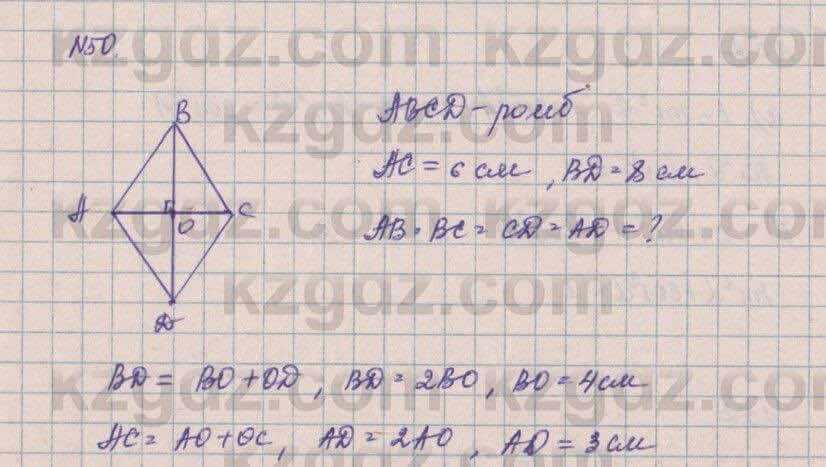 N50.
ABCD - ромб
AC = 6 см, BD = 8 см
AB = BC = CD = AD = ?
B
A
C
O
D
BD = BO + OD, BD = 2BO, BO = 4 см
AC = AO + OC, AD = 2AO, AO = 3 см
kzgdz.com kzgdz.com
kzgdz.com
kzgdz.com kzgdz.com
kzgdz.com
kzgdz.com kzgdz.com
kzgdz.com